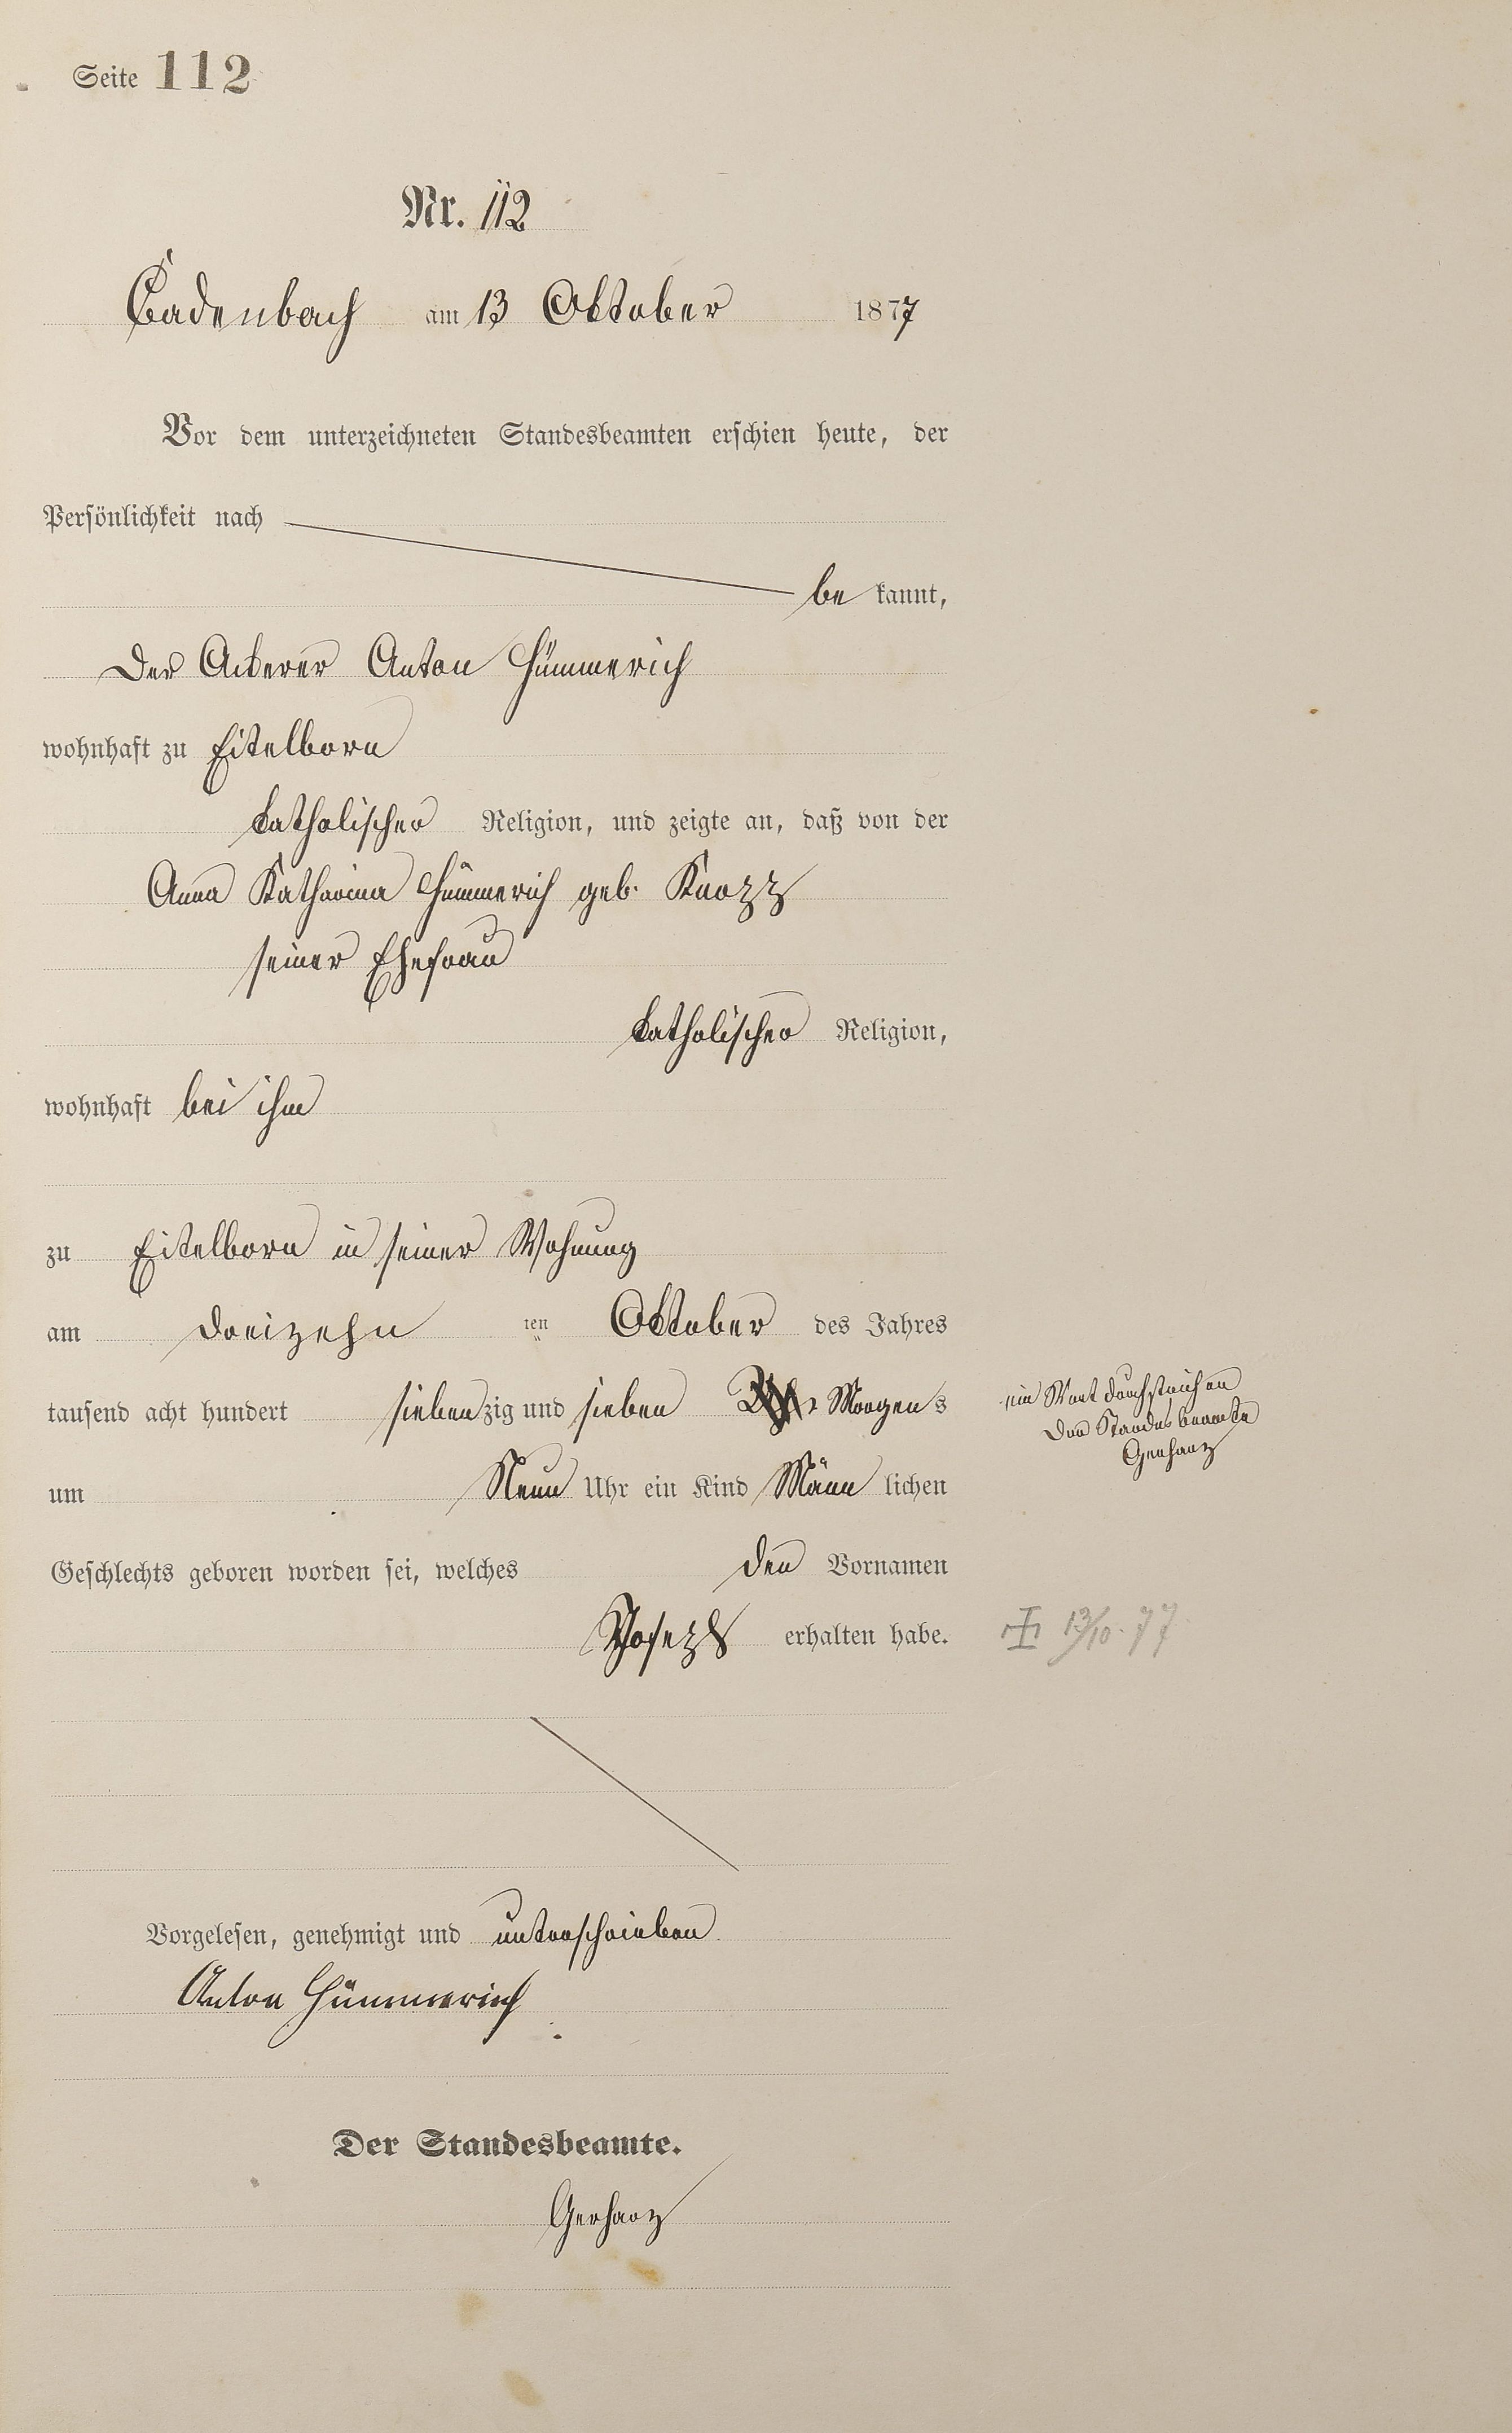 Seite 112
Nr. 112
Cadenbach am 13 Oktober 1877
Vor dem unterzeichneten Standesbeamten erschien heute, der
Persönlichkeit nach
be kannt,
der Ackerer Anton Hümmerich
wohnhaft zu Eitelborn
katholischer Religion, und zeigte an, daß von der
Anna Katharina Hümmerich geb. Knopp
seiner Ehefrau
katholischer Religion,
wohnhaft bei ihm
zu Eitelborn in seiner Wohnung
am dreizehn ten Oktober des Jahres
tausend acht hundert siebenzig und sieben Morgens
um Neun Uhr ein Kind Männ lichen
Geschlechts geboren worden sei, welches den Vornamen
Joseph erhalten habe.
Vorgelesen, genehmigt und unterschrieben
Anton Hümmerich
Der Standesbeamte.
Gerharz
ein Wort durchstrichen
Der Standesbeamte
Gerharz
13/10. 77